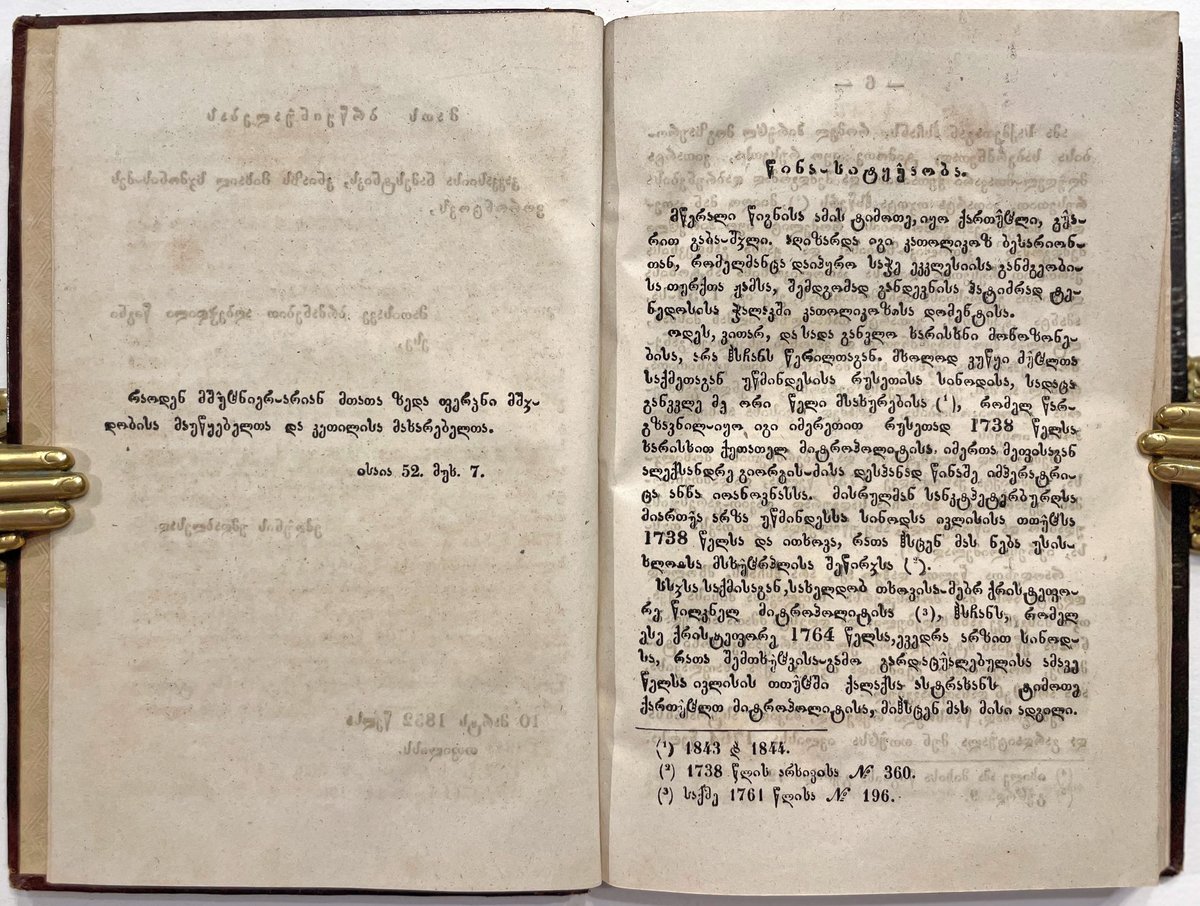 რაოდენ მშუ̂ცნიერ-არიან მთათა ზედა ფერჴნი მშჳ-
დობისა მაუწყებელთა და კეთილისა მახარებელთა.
ისაია 52. მუხ. 7.
წინა-სიტყუ̂აობა.
მწერალი წიგნისა ამის ტიმოთე, იყო ქართუ̂ცლი, გუ̂ა-
რით გაბა-შჳლი. აღიზარდა იგი კათოლიკოზ ბესარიონ-
თან, რომელმანცა დაიპყრო საჭე ეკკლესიისა განმგეობი-
სა თურქთა ჟამსა, შემდგომად განდევნისა პატიმრად ტე-
ნედოსისა ჭალაკში კათოლიკოზისა დომენტისა.
ოდეს, ვითარ, და სადა განვლო ხარისხნი მონოზონე-
ბისა, არა ჰსჩანს წერილთაგან. მხოლოდ ვუწყი მუ̂ცლთა
საქმეთაგან უწმინდესისა რუსეთისა სინოდისა, სადაცა
განვვლე მე ორი წელი მსახურებისა (¹), რომელ წარ-
გზავნილ-იყო იგი იმერეთით რუსეთად 1738 წელსა
ხარისხით ქუთათელ მიტროპოლიტისა, იმერთა მეფისაგან
ალექსანდრე გიორგის-ძისა დესპანად წინაშე იმპერატრი-
ცა ანნა იოანოვნასსა. მისრულმან სანკტპეტერბურღსა
მიართუ̂ა არზა უწმინდესსა სინოდსა ივლისისა თთუ̂ცსა
1738 წელსა და ითხოვა, რათა ჰსცენ მას ნება უსის-
ხლოჲსა მსხუ̂ცრპლისა შეწირჳსა (²).
სხჳსა საქმისაგან, სახელდობ თხოვისა-მებრ ქრისტეფო-
რე წილკნელ მიტროპოლიტისა (³), ჰსჩანს, რომელ
ესე ქრისტეფორე 1764 წელსა, ევედრა არზით სინოდ-
სა, რათა შემთხუ̂ცვისა-გამო გარდაცუ̂ალებულისა ამავე
წელსა ივლისის თთუ̂ცში ქალაქსა ასტრახანს ტიმოთე
ქართუ̂ცლთ მიტროპოლიტისა, მიჰსცენ მას მისი ადგილი.
(¹) 1843 დ 1844.
(²) 1738 წლის არხივისა № 360.
(³) საქმე 1761 წლისა № 196.